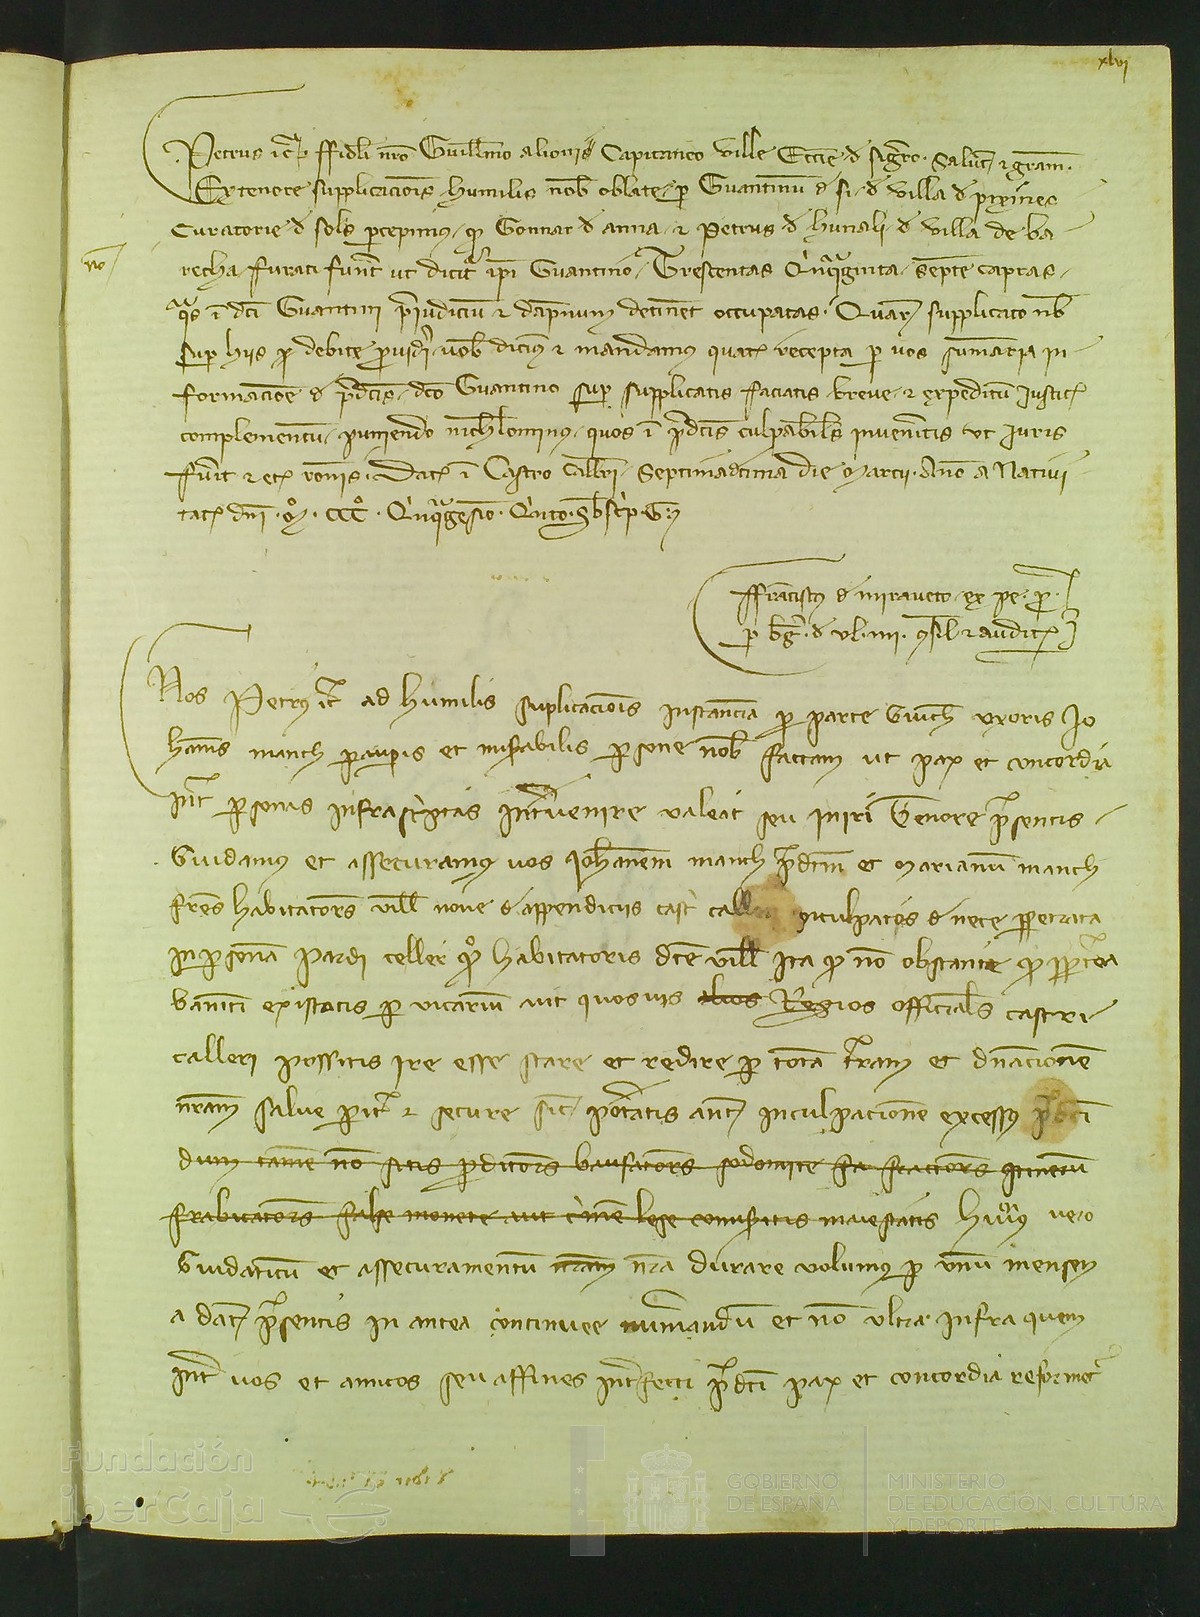 xlvi
Petrus etc. ffideli nro Guillmo alionis Capitaneo ville Eccie d sigro. Salut et gram.
Ex tenore supplicacionis humilis nob oblate p Guantinum d si d villa d
Curatorie d sols percepimus q Gonnar d anna et Petrus d hunali d villa de ba
no
recha furati funt ut dicitr ipi Guantino Trescentas Quiquaginta septe capras
qs i dci Guantini preiudiciu et dapnum detinet occupatas. Quare supplicato nb
sup hiis p debite puidi uob dicimus et mandamus quat recepta p uos summaria in
formacione d pdctis dco Guantino sup supplicatis faciatis breue et expeditu Justic
complementu puniendo nichlominus quos i pdctis culpabils inveneritis ut Juris
fuit et ronis. Dat i Castro Callri Septimadecima die Marcii. Ano a Nativi
tat dni M CCC Quiquagesio Quto.
ffranciscus d miraueto ex pe. p.
p bgr. d ul. et audit
Nos Petrus etc ad humilis suplicacionis instancia p parte uxoris Jo
hanis manch pauperis et miserabilis persone nob factam ut pax et concordia
int personas infrascriptas intervenire valeat seu iniri Tenore presentis
Guidamus et assecuramus uos Johanem manch pdcm et Marianu manch
fres habitators vill noue d appendiciis cast inculpatos d nece perpetrata
in persona Pardi celler q habitatoris dce vill Ita q no obstante q
banniti existatis p vicarium aut quosuis alios Regios officials castri
calleri possitis ire esse stare et redire p tota terram et dnacione
nram salue et secure sic poteratis ant inculpacione excessus pdci
dum tame no sitis pditors bausators sodomite fractors itineru
frabicators false monete aut crimen lese comiseritis maiestatis huius vero
Guidaticu et assecuramentu nram nra durare volumus p unu mensem
a dat presentis in antea continuee numerandu et no ultra infra quem
int uos et amicos seu affines interfecti pdci pax et concordia reformet
Fundación
iberCaja
GOBIERNO
DE ESPAÑA
MINISTERIO
DE EDUCACIÓN, CULTURA
Y DEPORTE